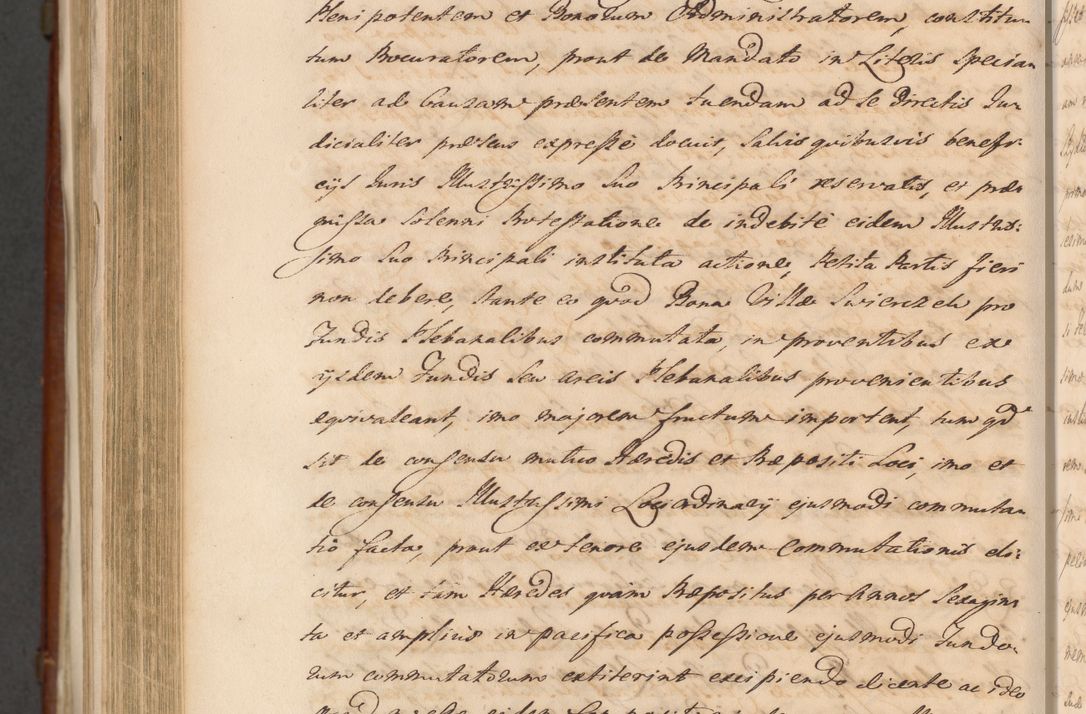 Plenipotentem et Bonorum Administratorem, constitu-
tum Procuratorem, prout de Mandato in Literis specia-
liter ad Causam præsentem tuendam ad se directis Ju-
dicialiter prævius expressè docuit, Salvis quibusvis benefi-
cijs Juris Illustrissimo Suo Principali reservatis, et præ-
missa Solenni Protestatione de indebitè eidem Illustris-
simo Suo Principali instituta actione, Petita Partis fieri
non debere, stante eo quod Bona Villæ Swierczek pro
Fundis Plebanalibus commutata, in proventibus ex
ijsdem Fundis Seu Areis Plebanalibus provenientibus
equivaleant, imo majorem fructum important, tum qd
sit de consensu mutuo Hæredis et Præpositi Loci, imo et
de consensu Illustrissimi Loci Ordinarij ejusmodi commuta-
tio facta, prout ex tenore ejusdem Commutationis do-
citur, et tàm Hæredes quàm Præpositus per Annos Sexagin-
ta et amplius in pacifica possessione ejusmodi Fundo-
rum commutatorum extiterint excipiendo dicente ac ideo